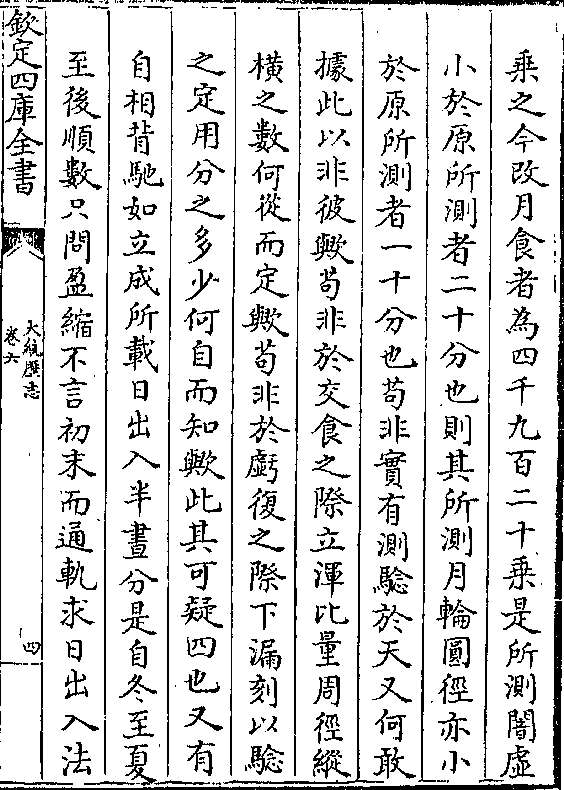 乗之今改月食者為四千九百二十乗是所測闇虚
小於原所測者二十分也則其所測月輪圓徑亦小
於原所測者一十分也茍非實有測驗於天又何敢
據此以非彼歟茍非於交食之際立渾比量周徑縱
橫之數何從而定歟茍非於虧復之際下漏刻以驗
之定用分之多少何自而知歟此其可疑四也又有
自相背馳如立成所載日出入半晝分是自冬至夏
至後順數只問盈縮不言初末而通軌求日出入法
欽定四庫全書
大統歷志
卷六
四